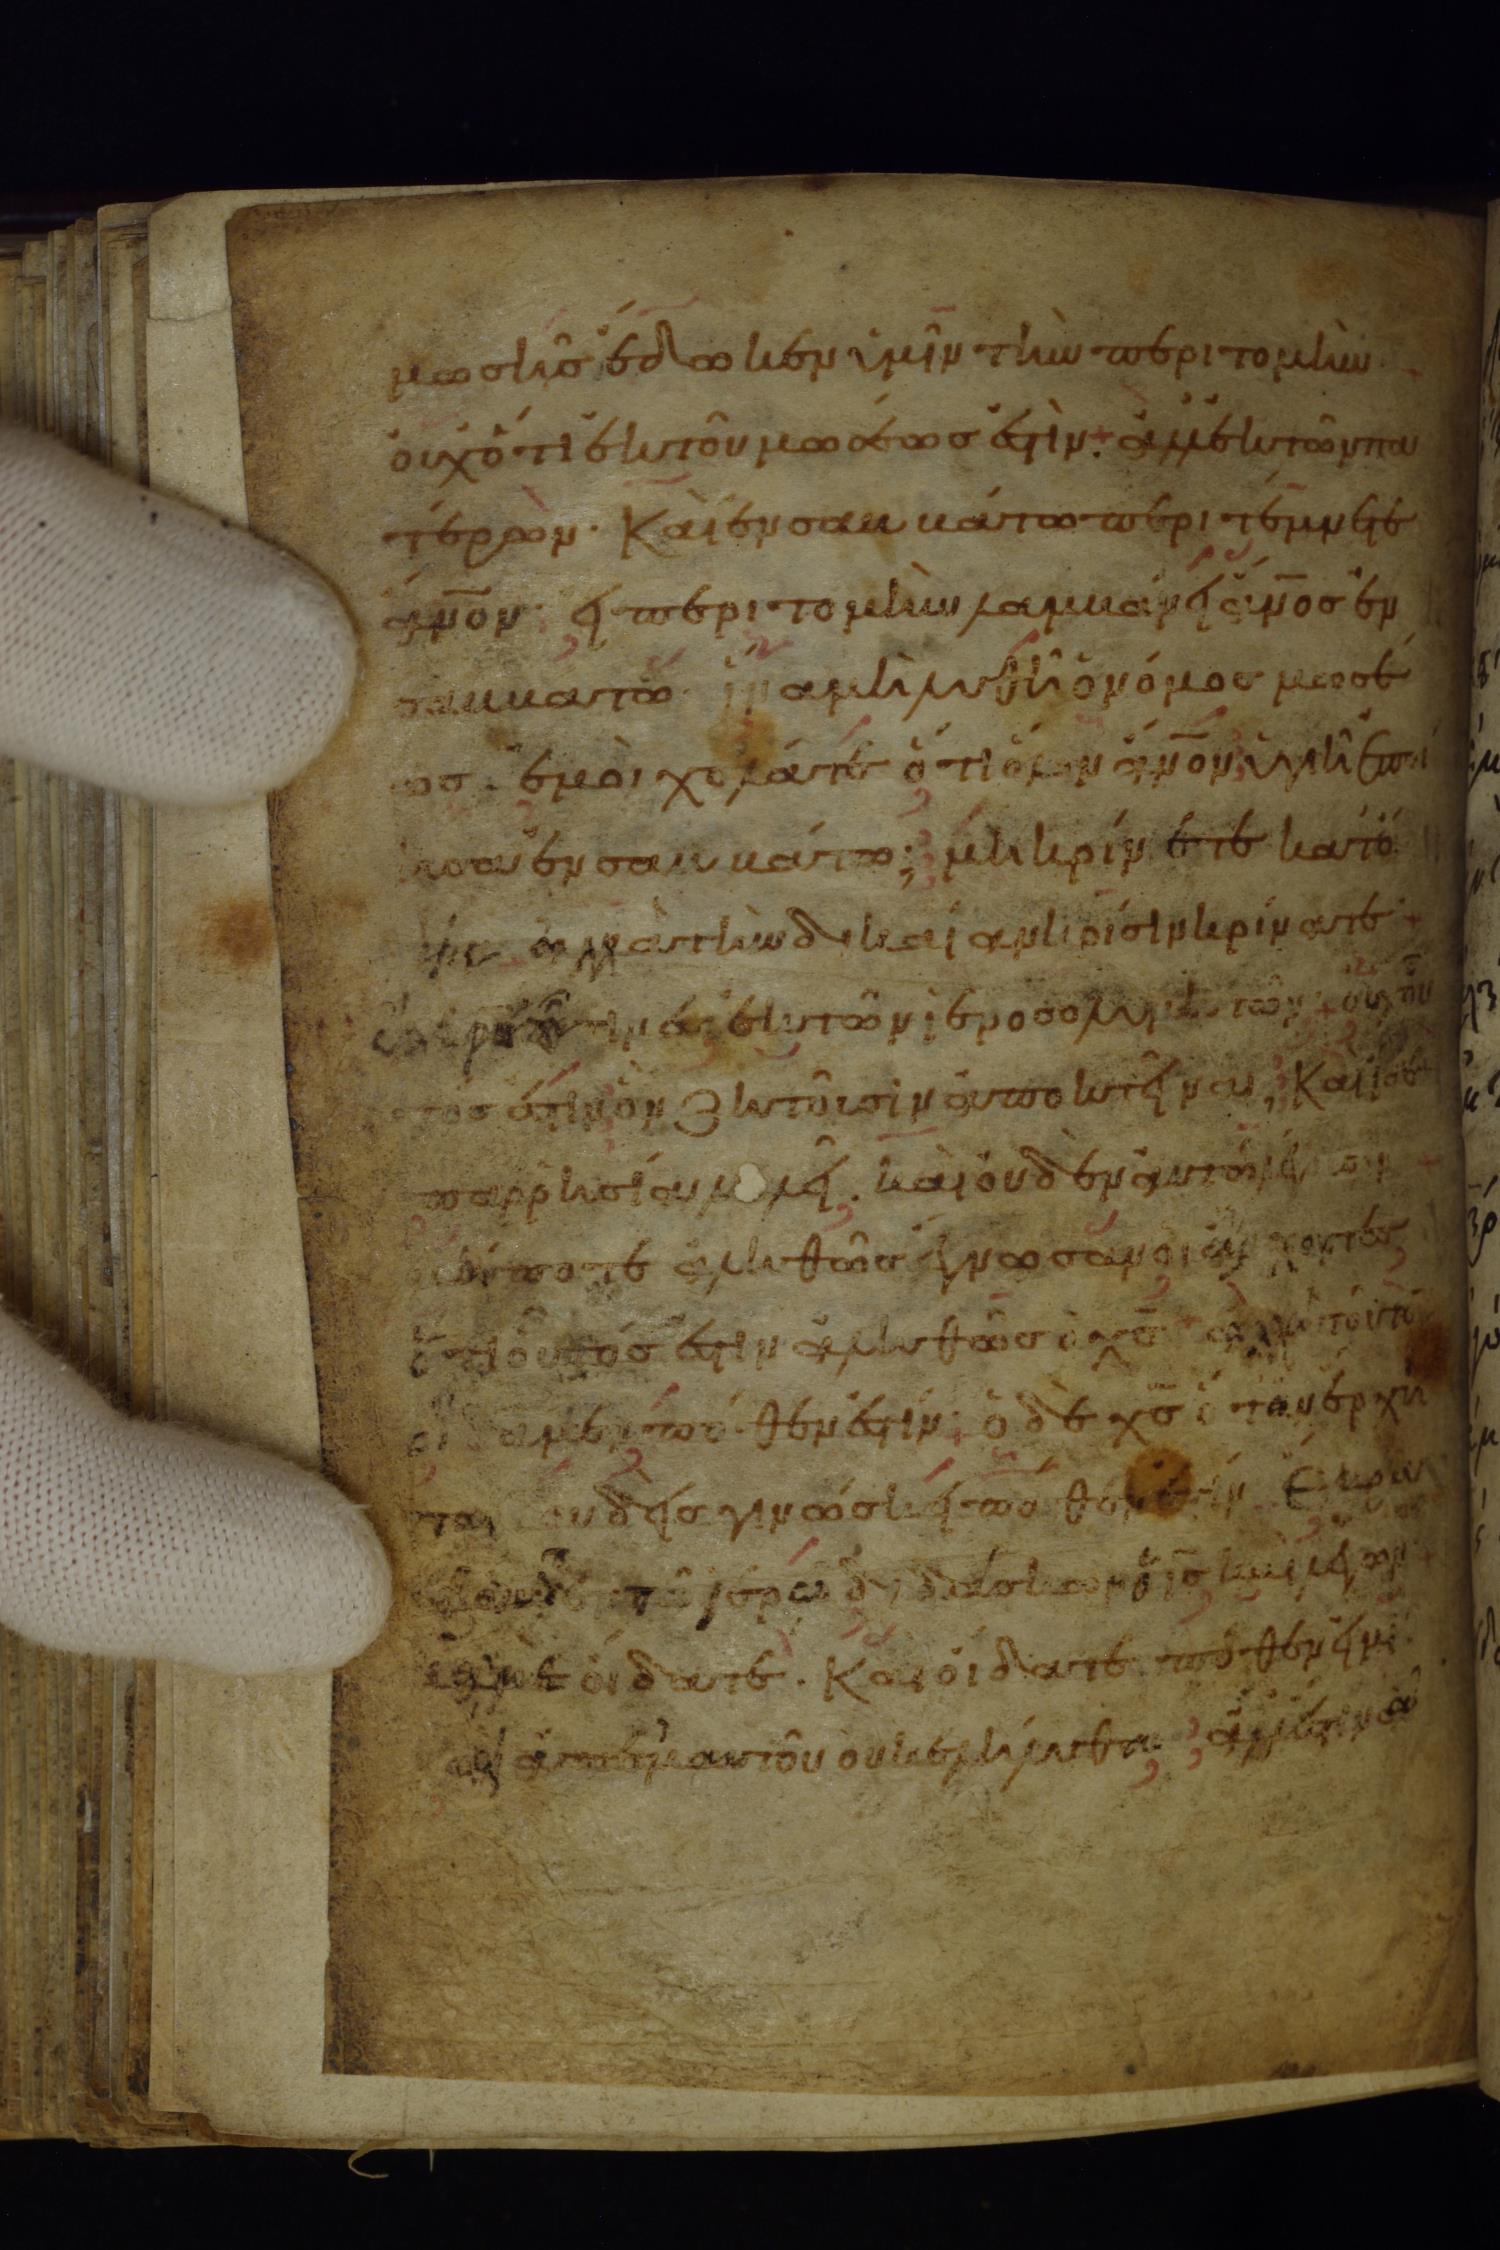 μωσῆς ἔδωκεν ὑμῖν τὴν περιτομὴν
οὐχ ὅτι ἐκ τοῦ μωσέως ἐστὶν· ἀλλ ἐκ τῶν πα
τέρων· Καὶ ἐν σαββάτω περιτέμνετε
ἄνον· εἰ περιτομὴν λαμβάνει ἄνος ἐν
σαββάτω· ἵνα μὴ λυθῆ ὁ νόμος μωσέ
ως· ἐμοὶ χολάτε ὅτι ὅλον ἄνον ὑγιῆ ἐποί
ησα ἐν σαββάτω; μὴ κρίνετε κατ ὄ
ψιν ἀλλὰ τὴν δικαίαν κρίσιν κρίνατε·
ἔλεγον οὖν τινὲς ἐκ τῶν ἱεροσολυμιτῶν· οὐχ οὗ
τος ἐστιν ὃν ζητοῦσιν ἀποκτεῖναι, Καὶ ἴδε
παρρησία λαλεῖ· καὶ οὐδὲν αὐτῶ λέγουσιν
μήποτε ἀληθῶς ἔγνωσαν οἱ ἄρχοντες
ὅτι οὗτός ἐστιν ἀληθῶς ὁ χς· ἀλλὰ τοῦτον
οἴδαμεν πόθεν ἐστίν· ὁ δὲ χς ὅταν ἔρχη
ται οὐδεὶς γινώσκει πόθεν ἐστίν Ἔκρα
ξεν οὖν ἐν τῶ ἱερῶ διδάσκων ὁ ις καὶ λέγων
κἀμὲ οἴδατε· Καὶ οἴδατε πόθεν εἰμί·
καὶ ἀπ ἐμαυτοῦ οὐκ ἐλήλυθα ἀλλ ἔστιν ἀ